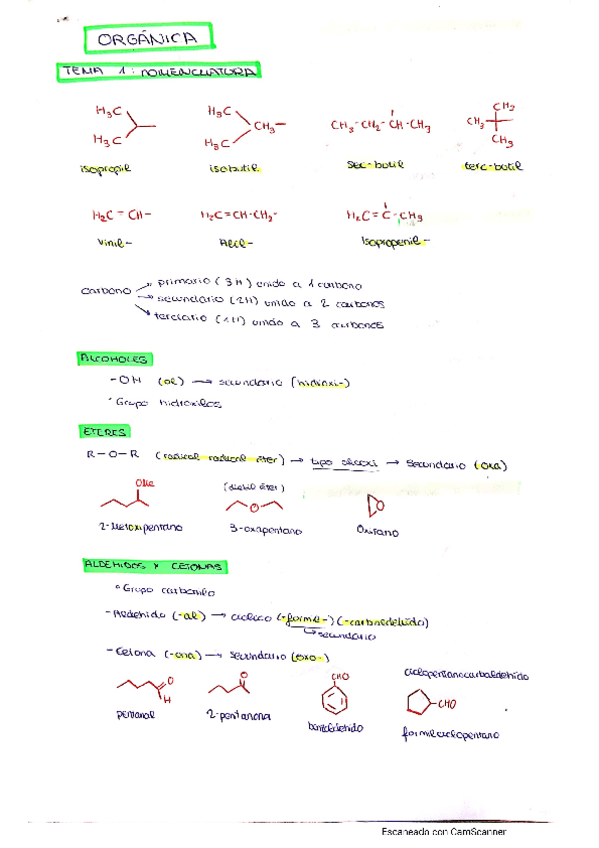 ORGÁNICA
TEMA 1: NOMENCLATURA
H3C H3C CH3-CH2-CH-CH3 CH3
H3C H3C CH3- CH3 CH3
isopropil isobutil sec-butil terc-butil
H2C=CH- H2C=CH-CH2- H2C=C-CH3
Vinil- Alil- Isopropenil-
carbono primario (3H) unido a 1 carbono
secundario (2H) unido a 2 carbonos
terciario (1H) unido a 3 carbonos
ALCOHOLES
-OH (ol) → secundario (hidroxi-)
°Grupo hidroxilos
ETERES
R-O-R (radical radical éter) → tipo alcoxi → secundario (oxa)
OMe (dietil éter) O
O
2-Metoxipentano 3-oxapentano Oxirano
ALDEHIDOS Y CETONAS
°Grupo carbonilo
-Aldehido (-al) → cíclico (-formil-) (-carbaldehido)
secundario
-Cetona (-ona) → secundario (oxo-)
O O CHO ciclopentanocarbaldehido
H CHO
pentanal 2-pentanona benzaldehido formilciclopentano
Escaneado con CamScanner